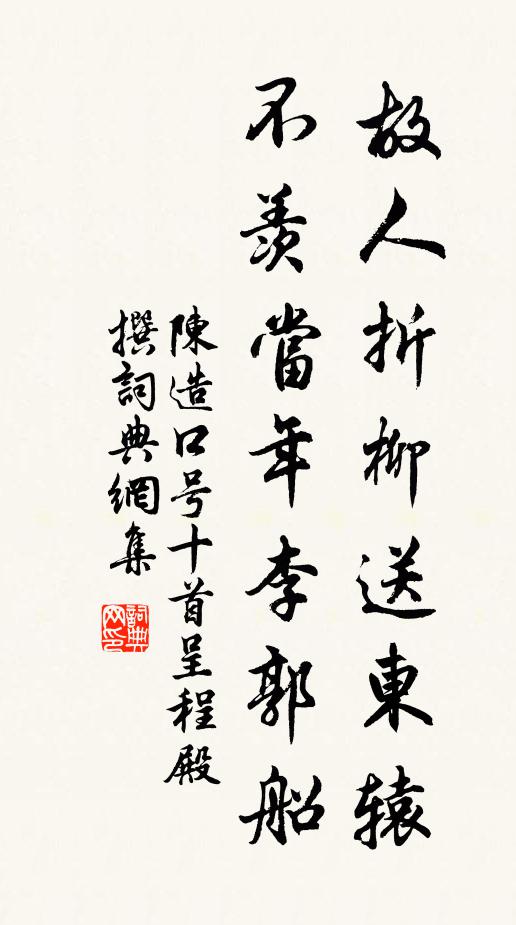 故人折柳送東辕
不羡當年李郭船
陳造口号十首呈程殿
撰詞典網集
詞典网印